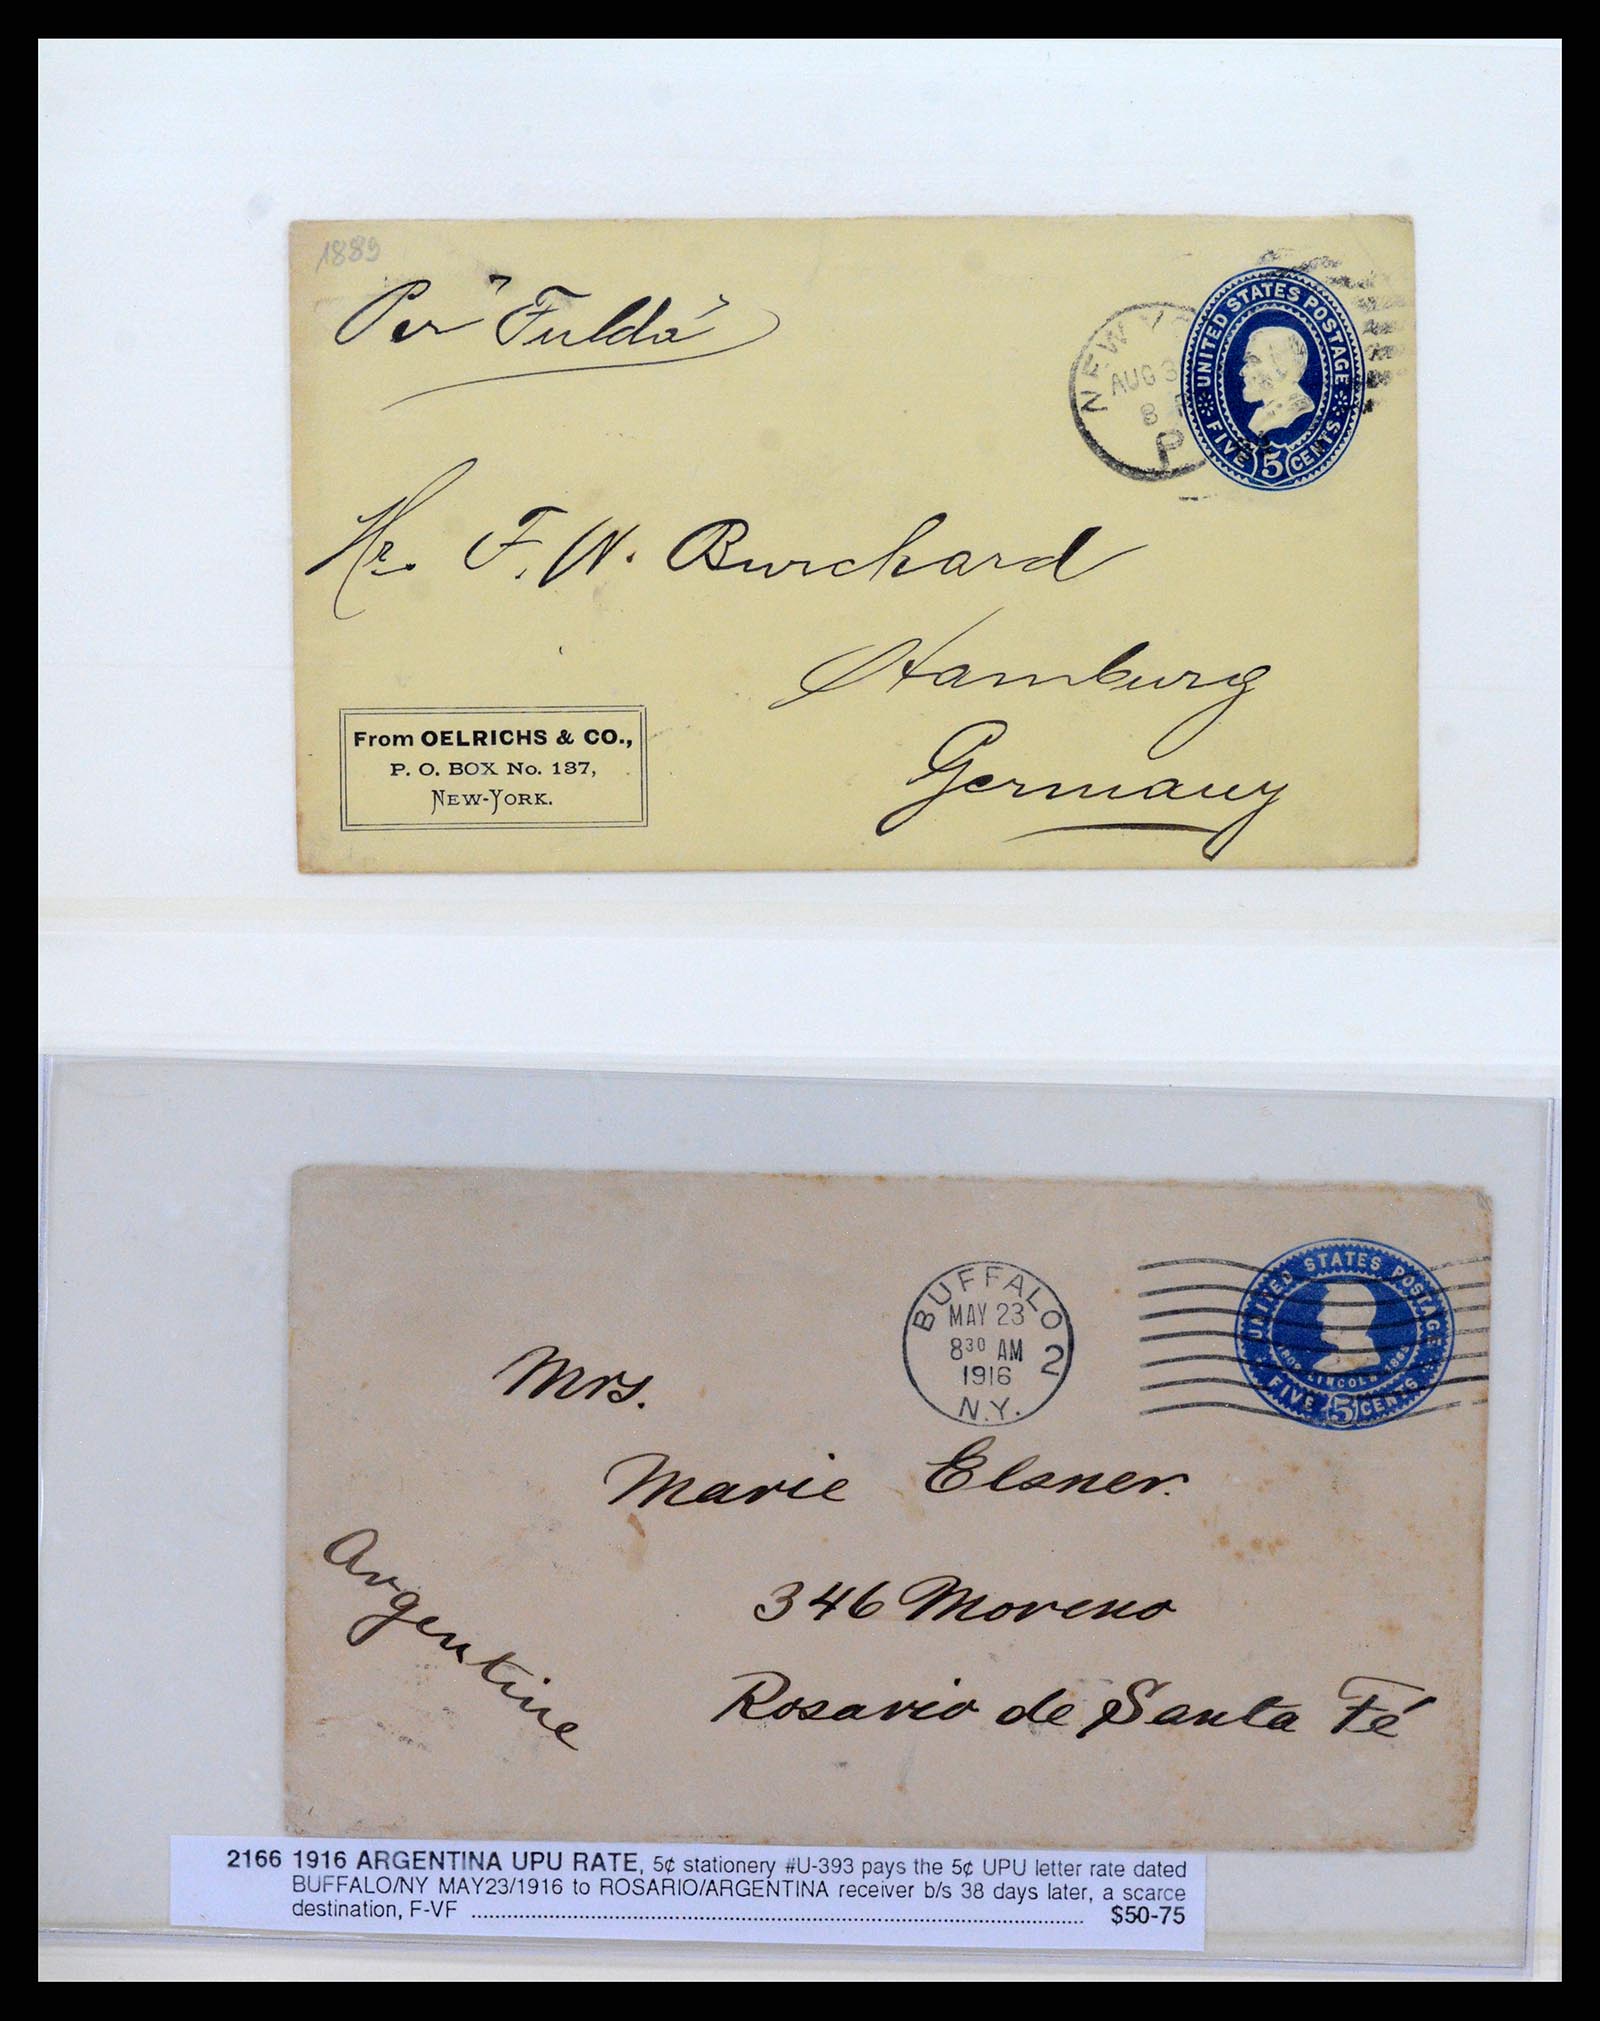 1889
Per "Fulda"
NEW Y
AUG 3
8
P
UNITED STATES POSTAGE
FIVE 5 CENTS
Hr. F. W. Burchard
Hamburg
Germany
From OELRICHS & CO.,
P. O. BOX No. 137,
NEW-YORK.
BUFFALO 2
MAY 23
8 30 AM
1916
N.Y.
UNITED STATES POSTAGE
1809 LINCOLN 1865
FIVE 5 CENTS
Mrs.
Marie Elsner.
346 Moreno
Rosario de Santa Fé
Argentine
2166 1916 ARGENTINA UPU RATE, 5¢ stationery #U-393 pays the 5¢ UPU letter rate dated
BUFFALO/NY MAY23/1916 to ROSARIO/ARGENTINA receiver b/s 38 days later, a scarce
destination, F-VF ........ $50-75